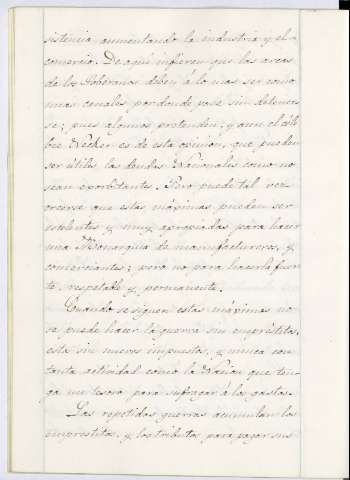 sistencia aumentando la industria y el
comercio. De aqui infieren que las arcas
de los Soberanos deben á lo mas ser como
unas canales por donde pase sin detener
se; pues algunos pretenden, y aun el céle
bre Necker es de esta opinion, que pueden
ser útiles las deudas Nacionales como no
sean exorbitantes. Pero puede tal vez
creerse que estas máximas pueden ser
escelentes y muy apropiadas para hacer
una Monarquia de manufactureros, y
comerciantes; pero no para hacerla fuer
te, respetable y permanente.
Cuando se siguen estas máximas no
se puede hacer la guerra sin empréstitos,
esta sin nuevos impuestos, y nunca con
tanta actividad como la Nacion que ten
ga un tesoro para sufragar á los gastos.
Las repetidas guerras acumulan los
empréstitos, y los tributos para pagar sus